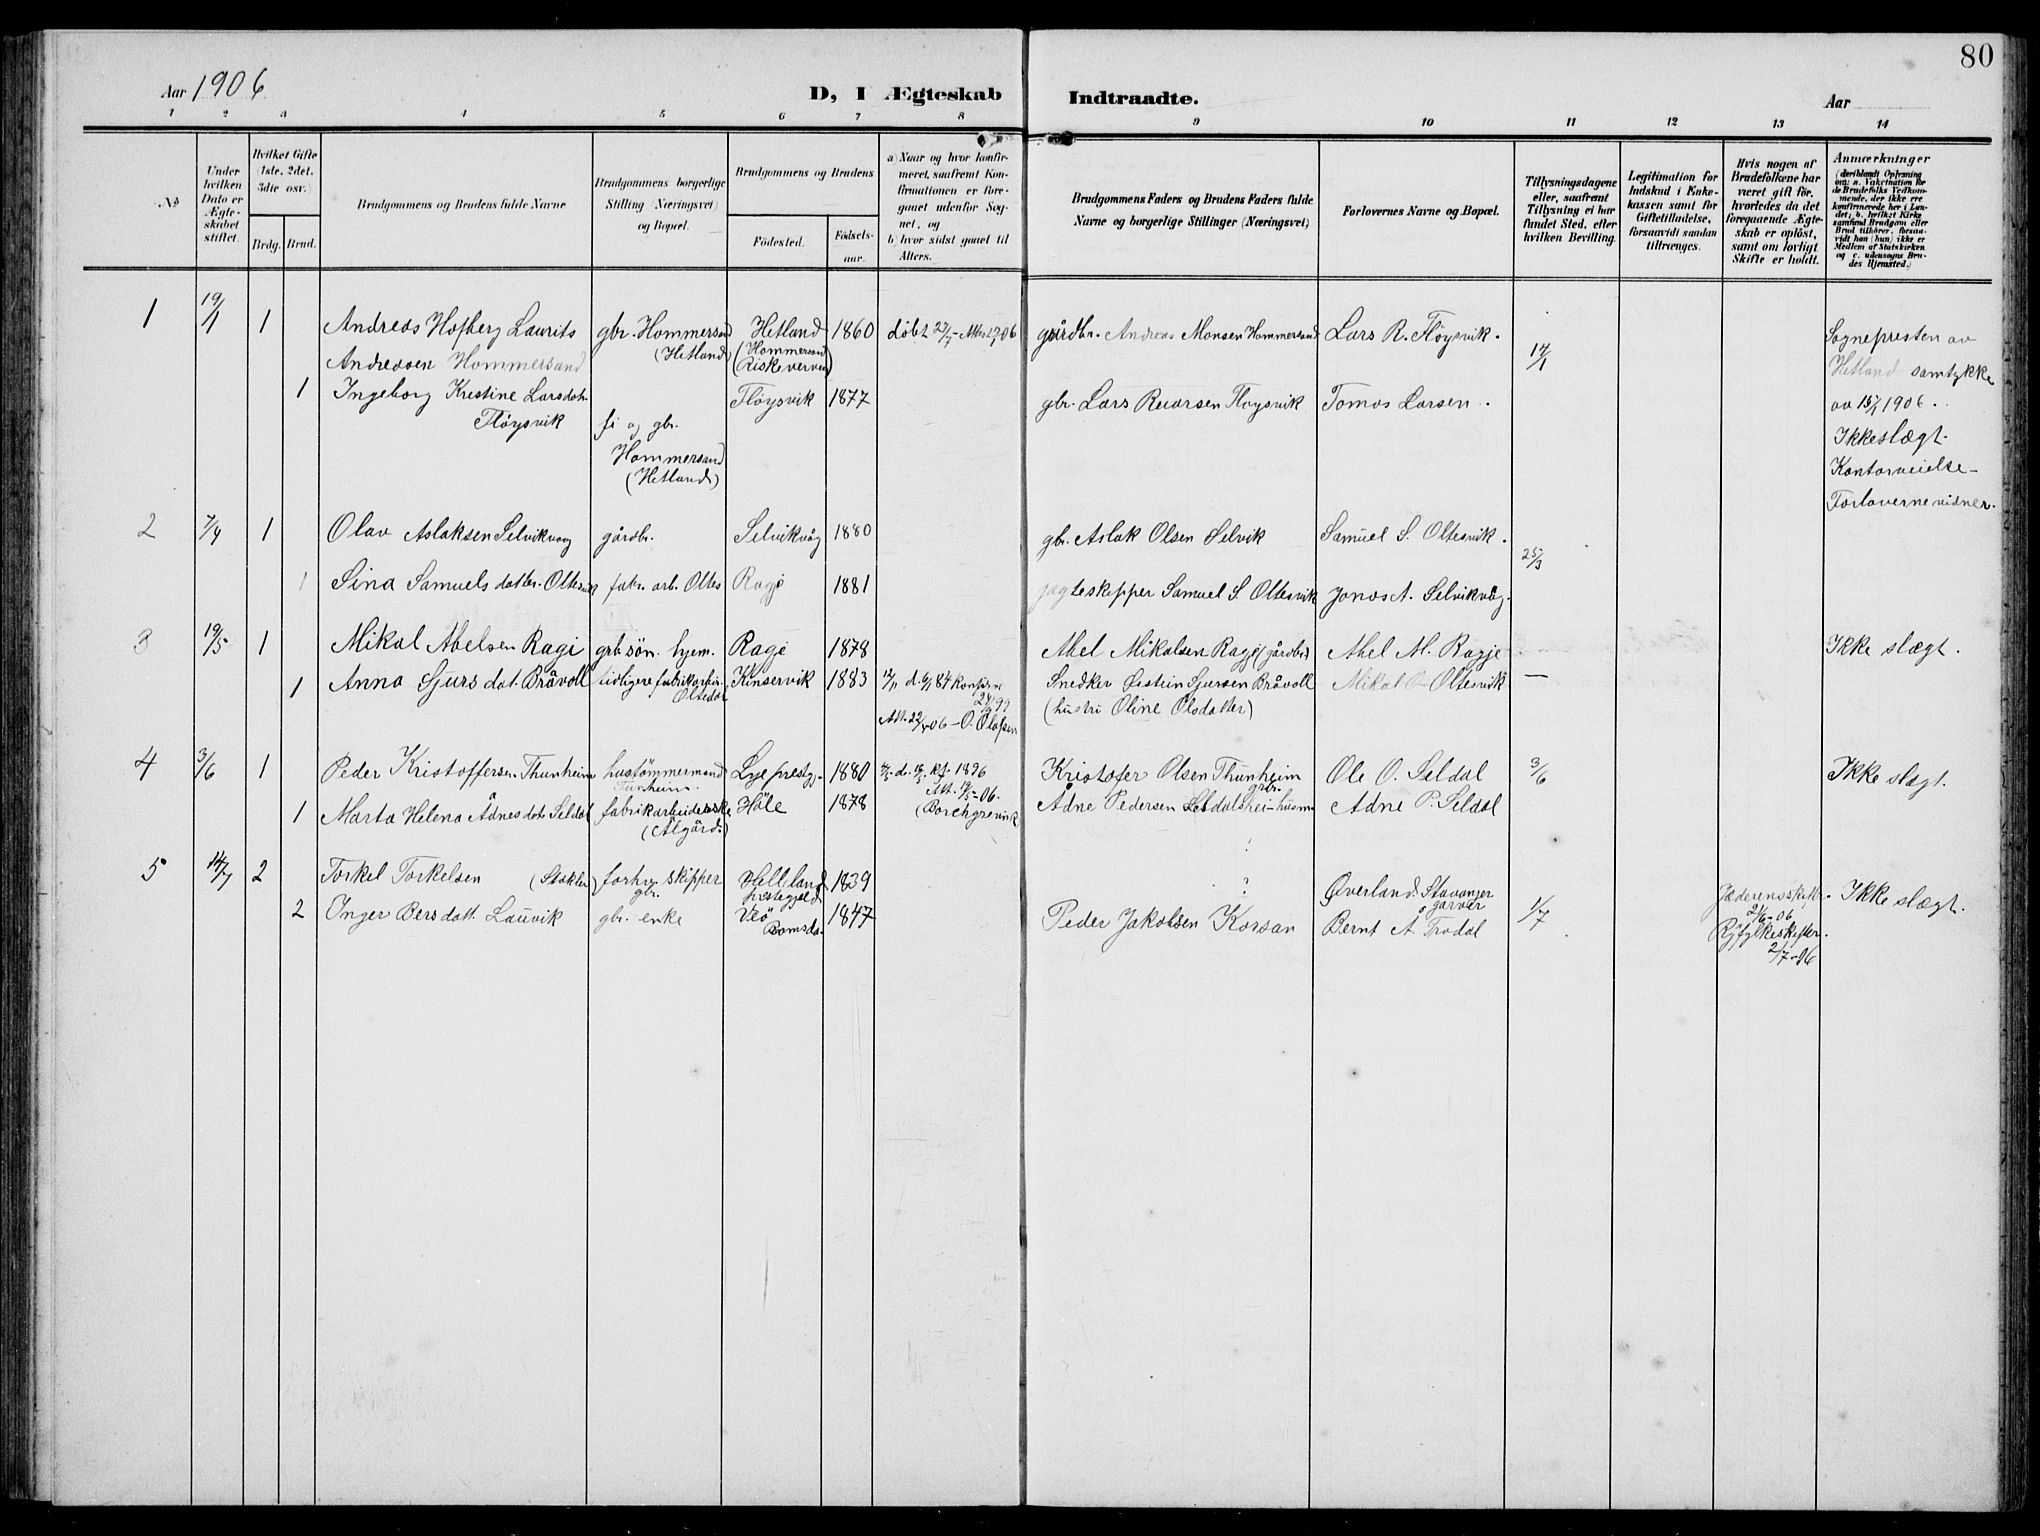 80
Aar 1906
D, I Ægteskab
Indtraadte.
Aar
1 2 3 4 5 6 7 8
9 10 11 12 13 14
No
Under hvilken Dato er Ægteskabet stiftet.
Hvilket Gifte 1ste, 2det, 3die osv.)
Brdg. Brud.
Brudgommens og Brudens fulde Navne
Brudgommens borgerlige Stilling (Næringsvei) og Bopæl.
Brudgommens og Brudens
Fødested.
Fødselsaar.
a) Naar og hvor konfirmeret, saafremt Konfirmationen er foregaaet udenfor Sognet, og
b) hvor sidst gaaet til Alters.
Brudgommens Faders og Brudens Faders fulde Navne og borgerlige Stillinger (Næringsvei)
Forlovernes Navne og Bopæl.
Tillysningsdagene eller, saafremt Tillysning ei har fundet Sted, efter hvilken Bevilling.
Legitimation for Indskud i Enkekassen samt for Giftetilladelse, forsaavidt saadan tiltrænges.
Hvis nogen af Brudefolkene har været gift før, hvorledes da det foregaaende Ægteskab er opløst, samt om lovligt Skifte er holdt.
Anmærkninger
(deriblandt Oplysning om: a. Vakcination for de Brudefolks Vedkommende, der ikke ere konfirmerede her i Landet; b. hvilket Kirkesamfund Brudgom eller Brud tilhører, forsaavidt han (hun) ikke er Medlem af Statskirken og c. udensogns Brudes Hjemsted.)
1 19/1 1 Andreas Hofberg Laurits gbr. Hommersand Hetland 1860 døbt 27/7
Andreasen Hommersand (Hetland) (Hommersand Riskeverven)
1 Ingeborg Kristine Larsdotr. Fløysvik 1877
Fløysvik fi og gbr.
Hommersand
(Hetland)
gårdbr. Andreas Monsen Hommersand Lars R. Fløysvik. 14/1
gbr. Lars Rasmsen Fløysvik Tomas Larsen.
Sognepresten av
Hetland samtykke
av 15/1 1906.
Ikke slægt.
Kontorvielse-
Forloverne vidner.
2 7/4 1 Olav Aslaksen Selvikvaag gårdbr. Selvikvåg 1880
1 Sina Samuelsdatter Oltesvik fabr. arb. Oltes Ragje 1881
gbr. Aslak Olsen Selvik Samuel S. Oltesvik. 25/3
jægteskipper Samuel S. Oltesvik Jonas A. Selvikvåg.
3 19/5 1 Mikal Abelsen Ragi gbr. søn. hjem. Rage 1878
1 Anna Sjursdat. Bråvoll tidligere fabrikarbei- Kinservik 1883
Oltedal
Abel Mikalsen Rage (gårdbr) Abel M. Ragje Ikke slægt.
Snedker Øistein Sjursen Bråvoll Mikal O Oltesvik —
(hustru Oline Olsdatter)
Att. 22/5-06 - O. Olafsen
4 3/6 1 Peder Kristoffersen Thunheim hustømmermand Lye prestgj. 1880 kf. 1896
Tunheim Att. 19/5-06.
1 Marta Helena Ådnesdot. Seldal fabrikarbeiderske Høle 1878 (Borchgrevink
(Ålgård)
Kristofer Olsen Thunheim gbr. Ole O. Seldal 3/6 Ikke slægt.
Ådne Pedersen Seldalshei-husm Adne P. Seldal
5 14/7 2 Torkel Torkelsen (Stokler) forhv. skipper Helleland 1839
gbr. prestegjeld
2 Inger Bersdatt. Lauvik gbr. enke Veø 1847
Romsda.
? Øverland Stavanger
garver 1/7
Peder Jakobsen Korsan Bernt A. Trodal
Jæderensskifte
21/6-06
Ryfylkeskifter.
2/7-06
Ikke slægt.